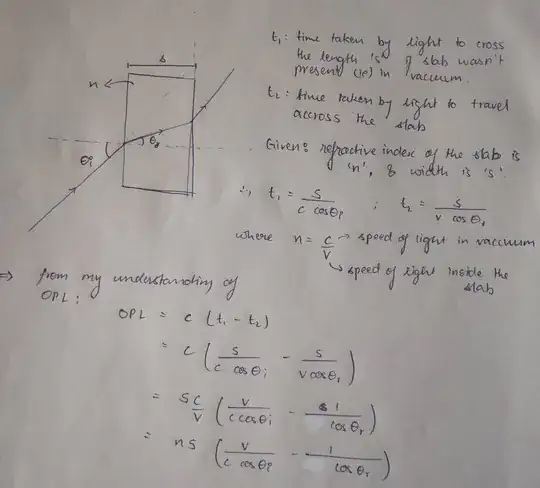 s
n
θi
θr
t₁: time taken by light to cross
the length 's' if slab wasn't
present (ie) in vacuum.
t₂: time taken by light to travel
accross the slab
Given: refractive index of the slab is
'n', & width is 's'.
∴ t₁ = s / (c cosθi) ; t₂ = s / (v cosθr)
where n = c/v → speed of light in vaccuum
→ speed of light inside the
slab
⇒ from my understanding of
OPL:
OPL = c (t₁ - t₂)
= c ( s / (c cosθi) - s / (v cosθr) )
= s c/v ( v / (c cosθi) - 1 / cosθr )
= ns ( v / (c cosθi) - 1 / cosθr )